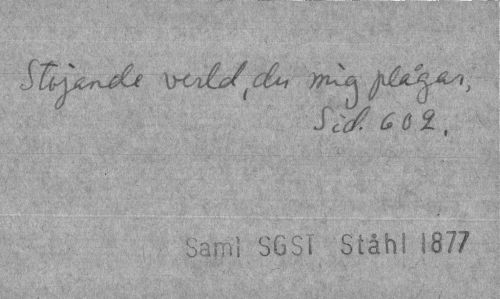 Stojande verld, du mig plågar,
Sid. 602.
Saml SGST Ståhl 1877